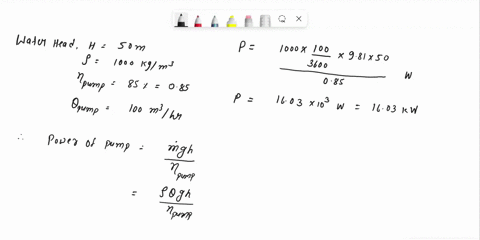 Water Head, H = 50m
ρ = 1000 kg/m³
η pump = 85% = 0.85
Q pump = 100 m³/hr
∴ Power of pump = ṁgh / η pump
= ρQgh / η pump
P = 1000 × 100/3600 × 9.81 × 50 / 0.85 W
P = 16.03 × 10³ W = 16.03 kW